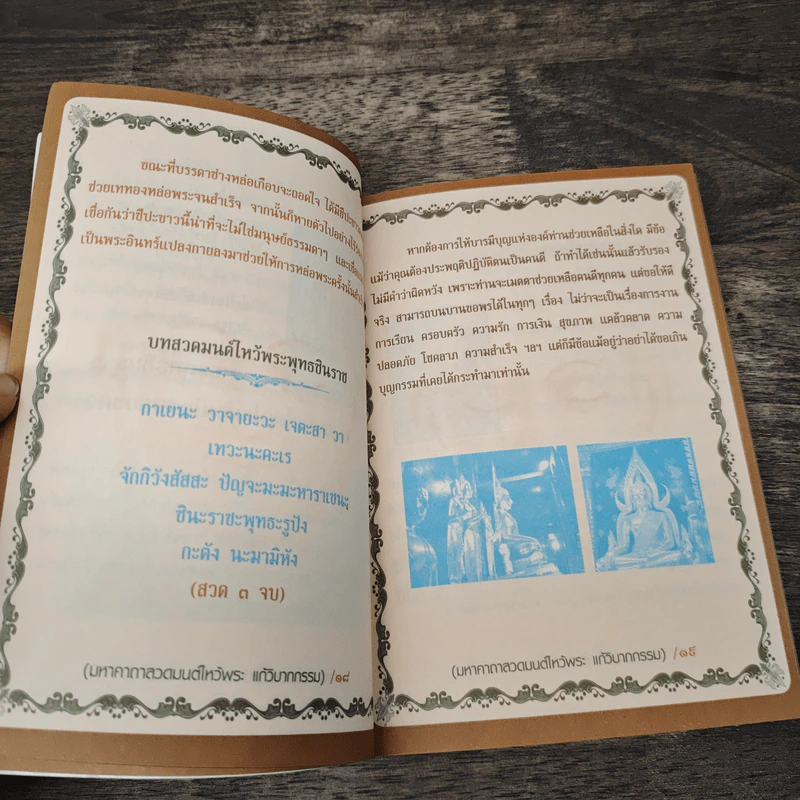 ขณะที่บรรดาช่างหล่อเกือบจะถอดใจ ได้มีชีปะขาว
ช่วยเททองหล่อพระจนสำเร็จ จากนั้นก็หายตัวไปอย่าง
เชื่อกันว่าชีปะขาวนี้น่าที่จะไม่ใช่มนุษย์ธรรมดาๆ และ
เป็นพระอินทร์แปลงกายลงมาช่วยให้การหล่อพระครั้งนั้น
บทสวดมนต์ไหว้พระพุทธชินราช
กาเยนะ วาจายะวะ เจตะสา วา
เทวะนะคะเร
จักกิวังสัสสะ ปัญจะมะมะหาราเชนะ
ชินะราชะพุทธะรูปัง
กะตัง นะมามิหัง
(สวด ๓ จบ)
(มหาคาถาสวดมนต์ไหว้พระ แก้วิบากกรรม) /๑๘
หากต้องการให้บารมีบุญแห่งองค์ท่านช่วยเหลือในสิ่งใด มีข้อ
แม้ว่าคุณต้องประพฤติปฏิบัติตนเป็นคนดี ถ้าทำได้เช่นนั้นแล้วรับรอง
ไม่มีคำว่าผิดหวัง เพราะท่านจะเมตตาช่วยเหลือคนดีทุกคน แต่ขอให้ดี
จริง สามารถบนบานขอพรได้ในทุกๆ เรื่อง ไม่ว่าจะเป็นเรื่องการงาน
การเรียน ครอบครัว ความรัก การเงิน สุขภาพ แคล้วคลาด ความ
ปลอดภัย โชคลาภ ความสำเร็จ ฯลฯ แต่ก็มีข้อแม้อยู่ว่าอย่าได้ขอเกิน
บุญกรรมที่เคยได้กระทำมาเท่านั้น
(มหาคาถาสวดมนต์ไหว้พระ แก้วิบากกรรม) /๑๙